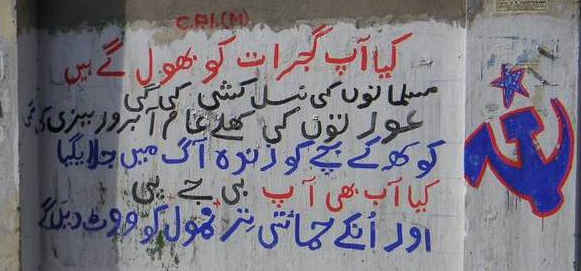 C.P.I.(M)
کیا آپ گجرات کو بھول گے ہیں
مسلمانوں کی نسل کشی کی گی
عورتوں کی کھلے عام آبروریزی کی گی
کو کھ کے بچے کو زندہ آگ میں جلایا گیا
کیا آب بھی آپ بی جے پی
اور اُنکے حمائتی ترنمول کو ووٹ دیں گے